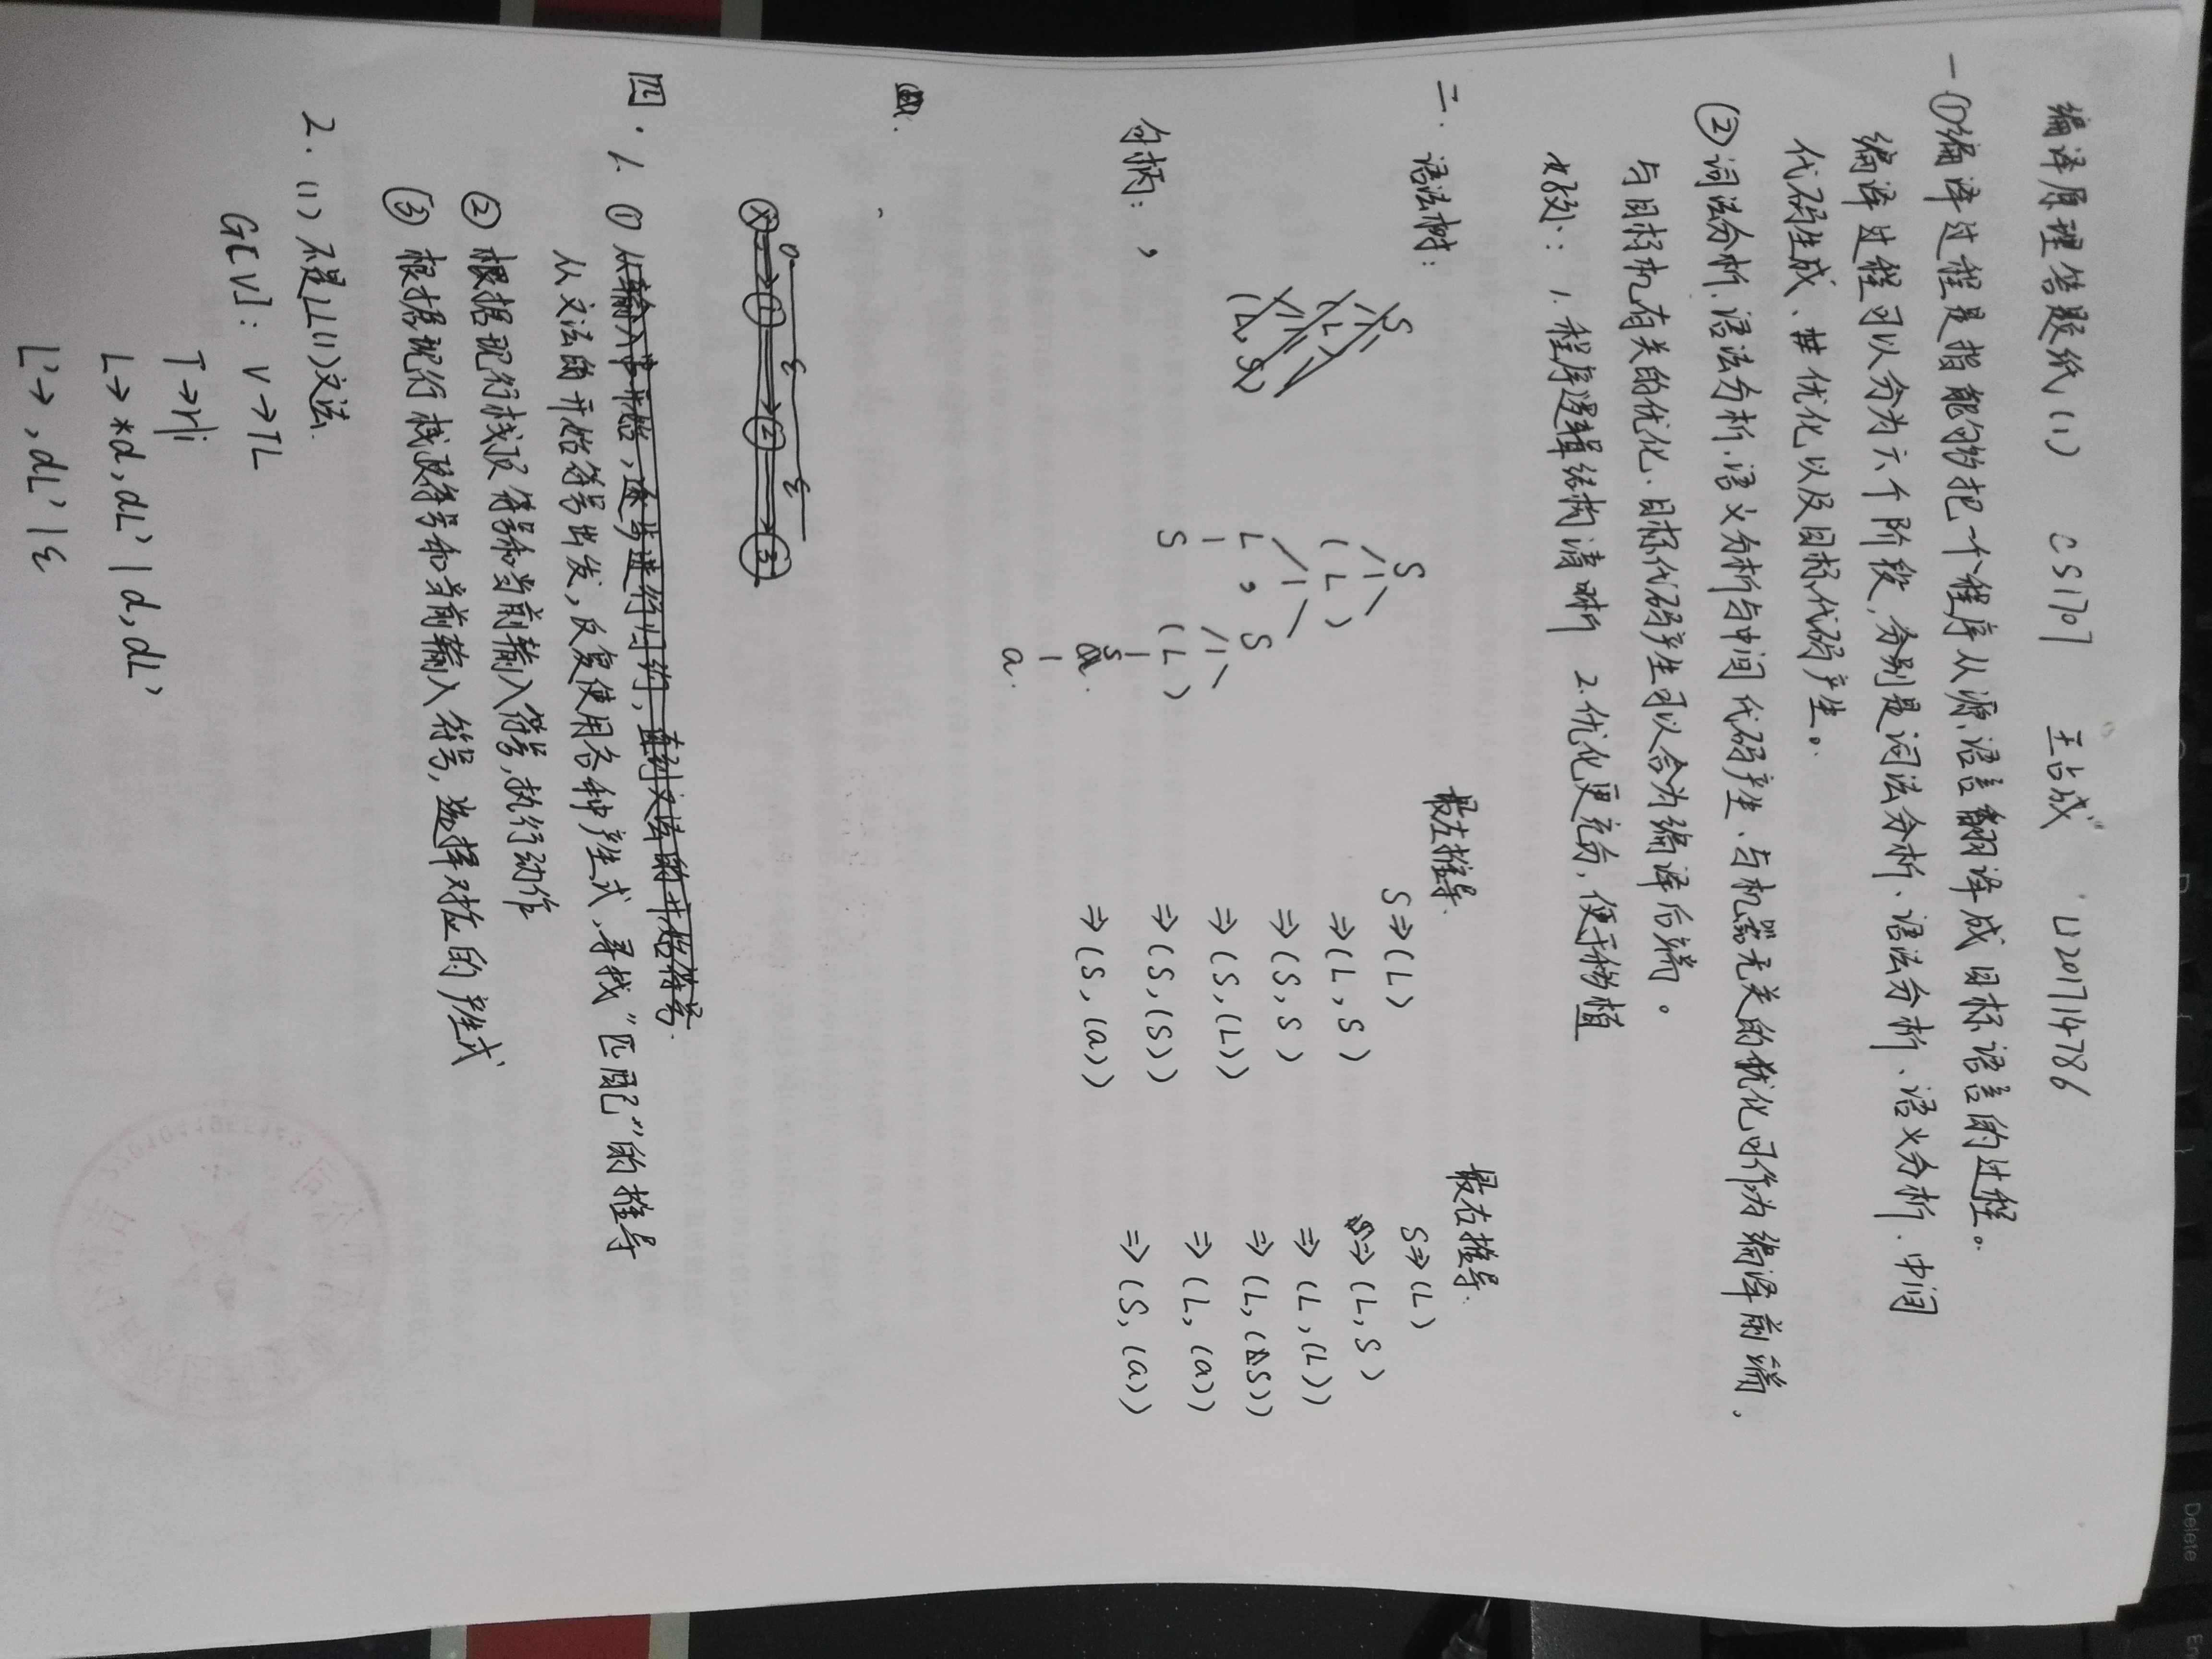 编译原理答题纸(1) CS1707 王占成 U201714786
一①编译过程是指能够把一个程序从源语言翻译成目标语言的过程。
编译过程可以分为六个阶段,分别是词法分析、语法分析、语义分析、中间
代码生成、优化以及目标代码产生。
②词法分析、语法分析、语义分析与中间代码产生、与机器无关的优化可作为编译前端,
与目标机有关的优化、目标代码产生可以合为编译后端。
好处:1.程序逻辑结构清晰 2.优化更充分,便于移植
二.语法树: 最左推导: 最右推导:
S
( L )
L , S
S ( L )
S
a
S⇒(L)
⇒(L,S)
⇒(S,S)
⇒(S,(L))
⇒(S,(S))
⇒(S,(a))
S⇒(L)
⇒(L,S)
⇒(L,(L))
⇒(L,(S))
⇒(L,(a))
⇒(S,(a))
句柄: ,
X 0 1 ε 2 ε 3
四.1.①从输入串开始,逐步进行归约,直到文法的开始符号.
从文法的开始符号出发,反复使用各种产生式,寻找"匹配"的推导
②根据现行栈顶符号和当前输入符号,执行动作
③根据现行栈顶符号和当前输入符号,选择对应的产生式
2.(1)不是LL(1)文法.
G[V]: V→TL
T→r|i
L→*d,dL'|d,dL'
L'→,dL'|ε
Delete